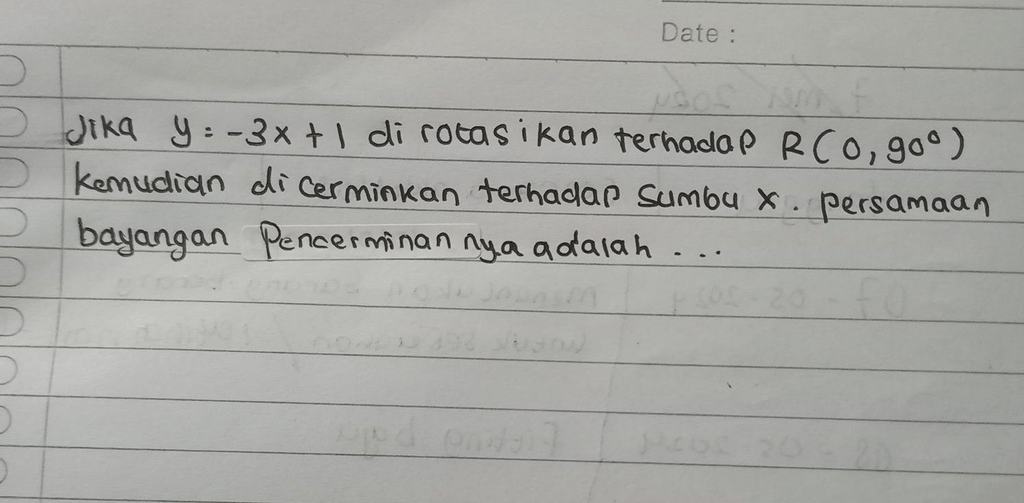 Date :
Jika y = -3x + 1 di rotasikan terhadap R(0, 90°)
kemudian di cerminkan terhadap sumbu x. persamaan
bayangan Pencerminan nya adalah ...